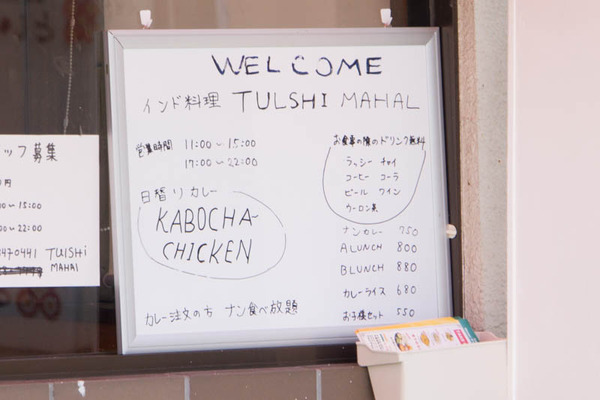 WELCOME
インド料理 TULSHI MAHAL
営業時間 11:00〜15:00
17:00〜22:00
日替りカレー
KABOCHA-
CHICKEN
カレー注文の方 ナン食べ放題
お食事の際のドリンク無料
ラッシー チャイ
コーヒー コーラ
ビール ワイン
ウーロン茶
ナンカレー 750
A LUNCH 800
B LUNCH 880
カレーライス 680
お子様セット 550
ッフ募集
円
〜15:00
〜22:00
470441 TULSHi
MAHAl